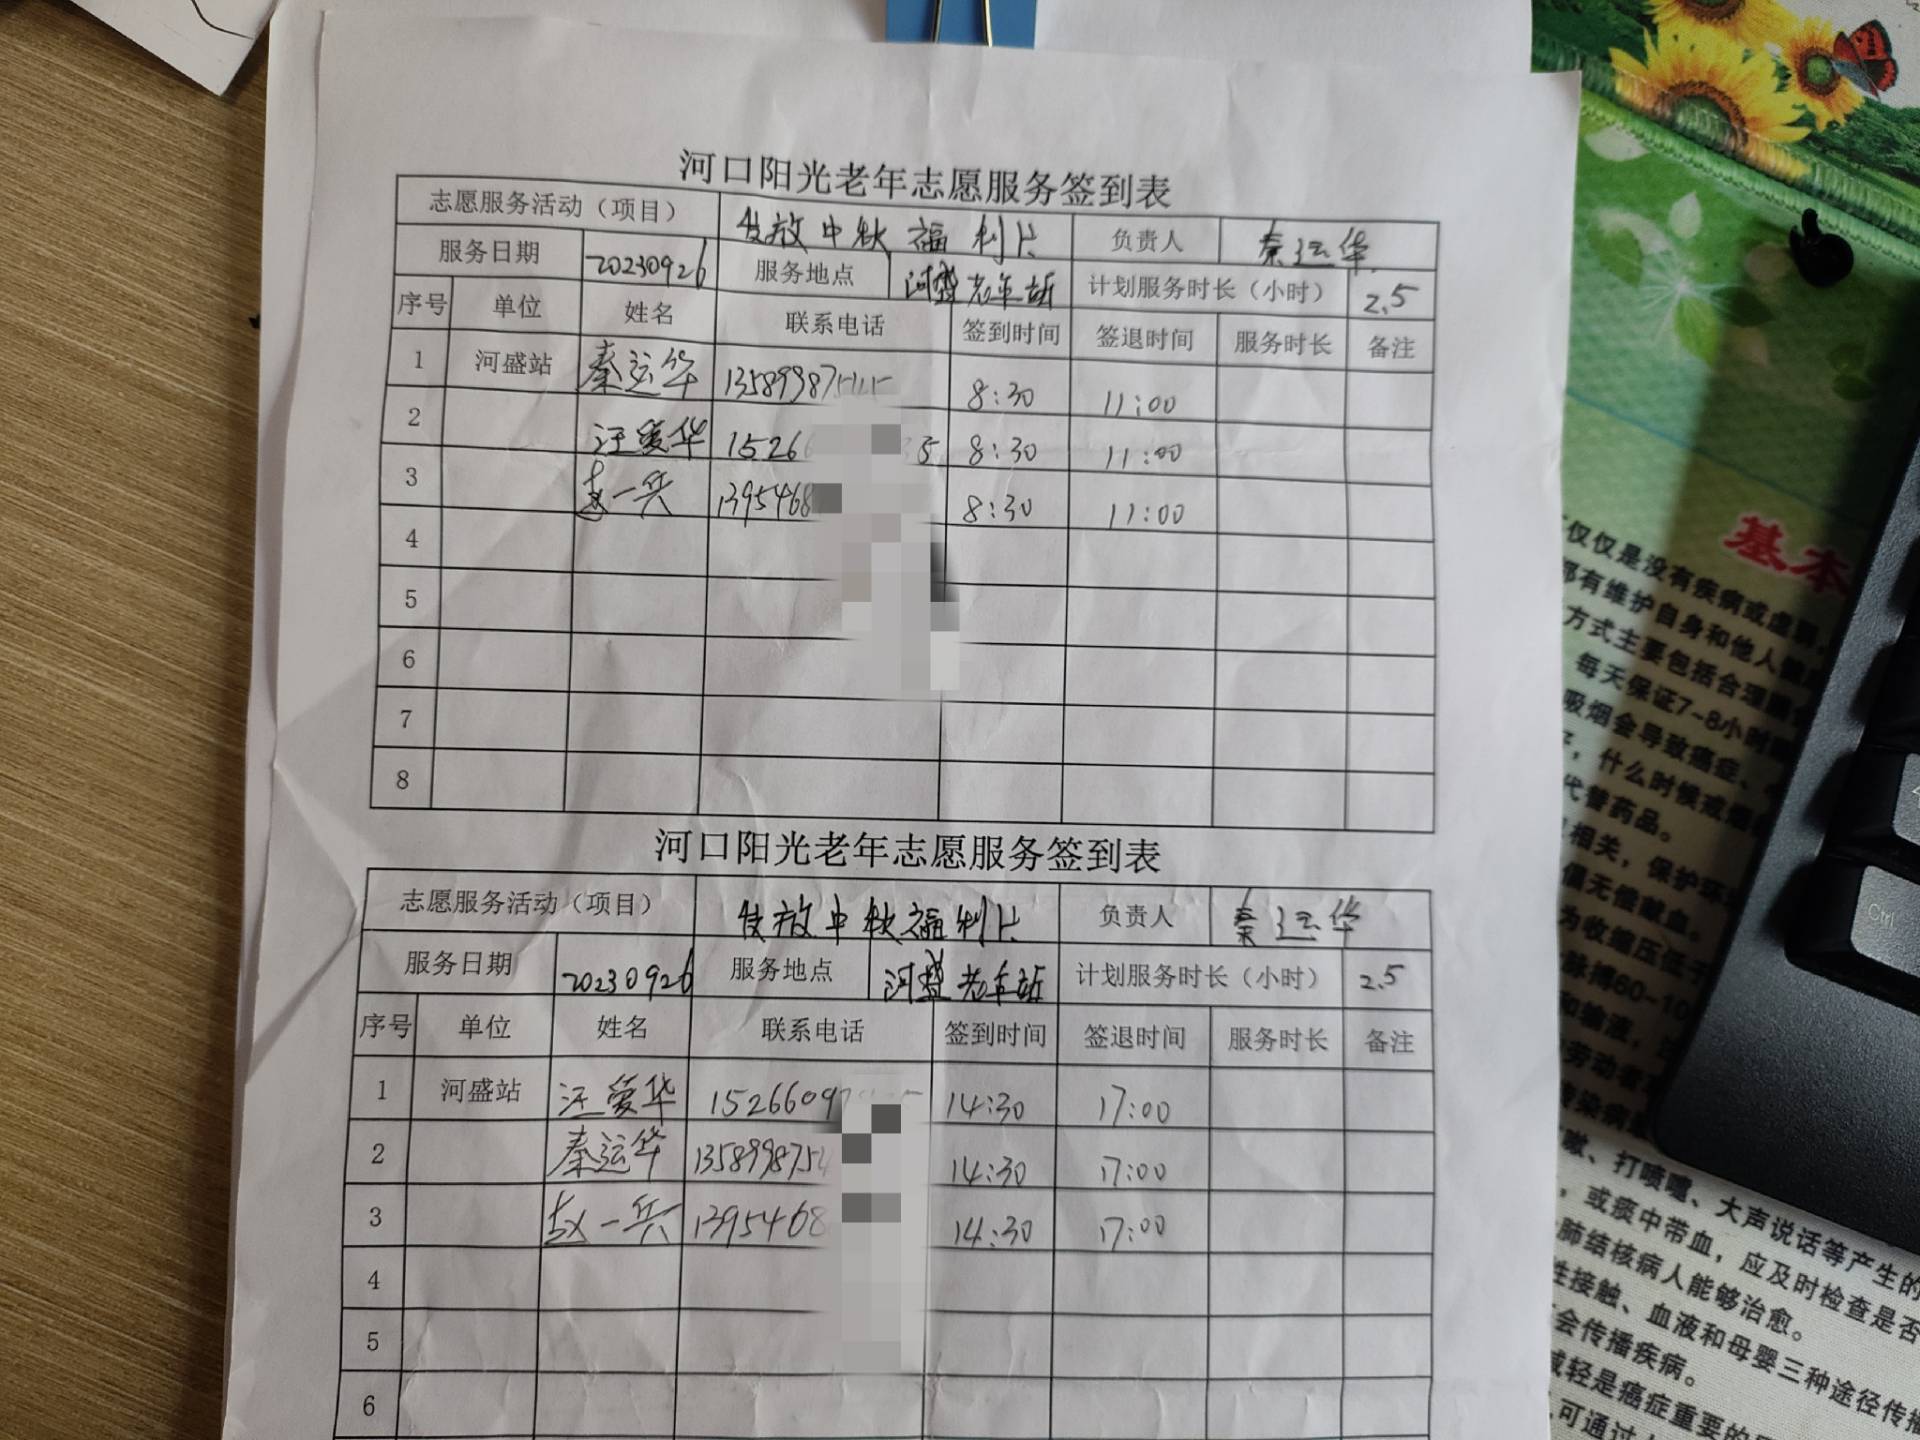 河口阳光老年志愿服务签到表
志愿服务活动（项目） 发放中秋福利片 负责人 秦运华
服务日期 20230926 服务地点 河盛老年站 计划服务时长（小时） 2.5
序号 单位 姓名 联系电话 签到时间 签退时间 服务时长 备注
1 河盛站 秦运华 8:30 11:00
2 汪爱华 8:30 11:00
3 赵一兵 8:30 11:00
4
5
6
7
8
河口阳光老年志愿服务签到表
志愿服务活动（项目） 发放中秋福利片 负责人 秦运华
服务日期 20230926 服务地点 河盛老年站 计划服务时长（小时） 2.5
序号 单位 姓名 联系电话 签到时间 签退时间 服务时长 备注
1 河盛站 汪爱华 14:30 17:00
2 秦运华 14:30 17:00
3 赵一兵 14:30 17:00
4
5
6
基本
仅仅是没有疾病或虚弱
都有维护自身和他人健
方式主要包括合理
每天保证7~8小时
吸烟会导致癌症、
什么时候戒烟
代替药品。
相关，保护环
偿无偿献血。
为收缩压低于
脉搏60~10
和输液，
劳动者
传染病
嗽、打喷嚏、大声说话等产生的
，或痰中带血，应及时检查是否
肺结核病人能够治愈。
性接触、血液和母婴三种途径传播
会传播疾病。
减轻是癌症重要的
可通过
Ctrl